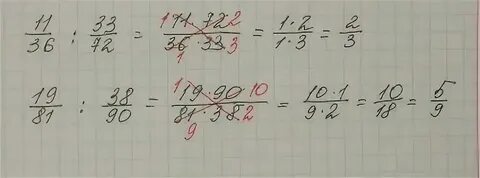 11/36 : 33/72 = 1 11·72 2 / 1 36·33 3 = 1·2/1·3 = 2/3
19/81 : 38/90 = 1 19·90 10 / 9 81·38 2 = 10·1/9·2 = 10/18 = 5/9